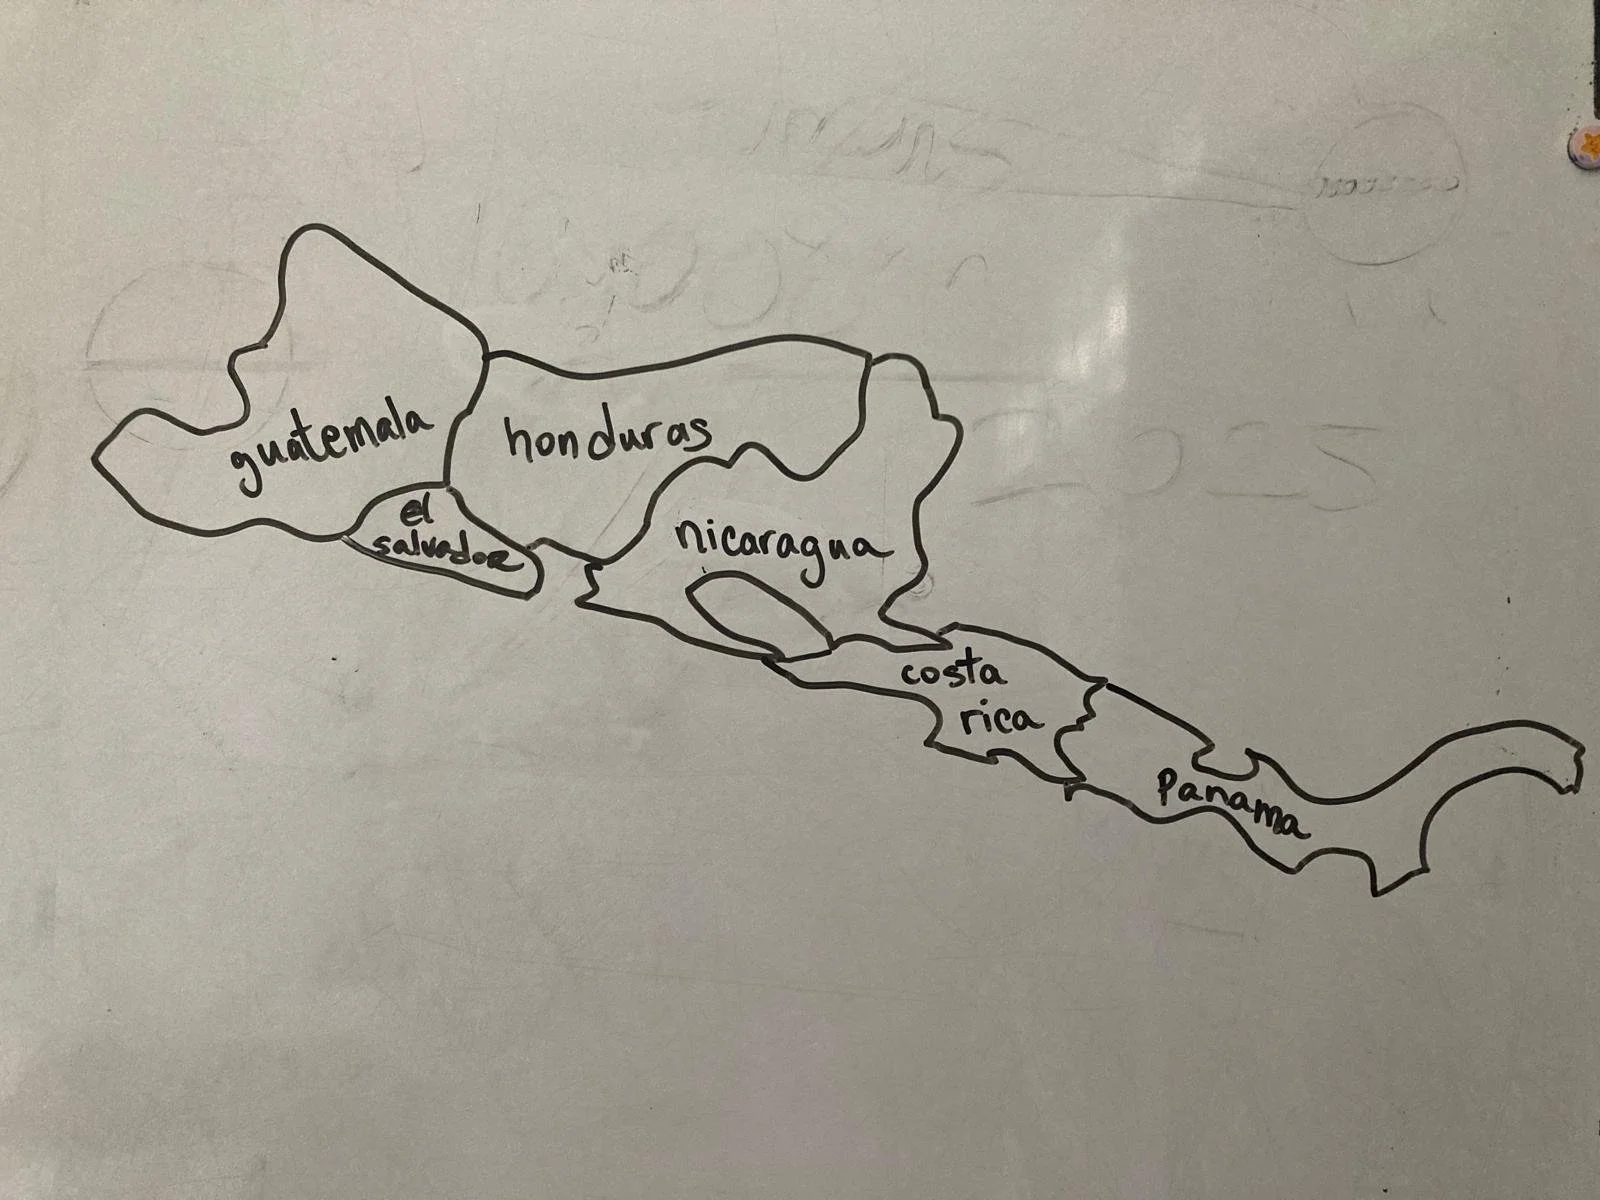 guatemala
honduras
el
salvador
nicaragua
costa
rica
Panama